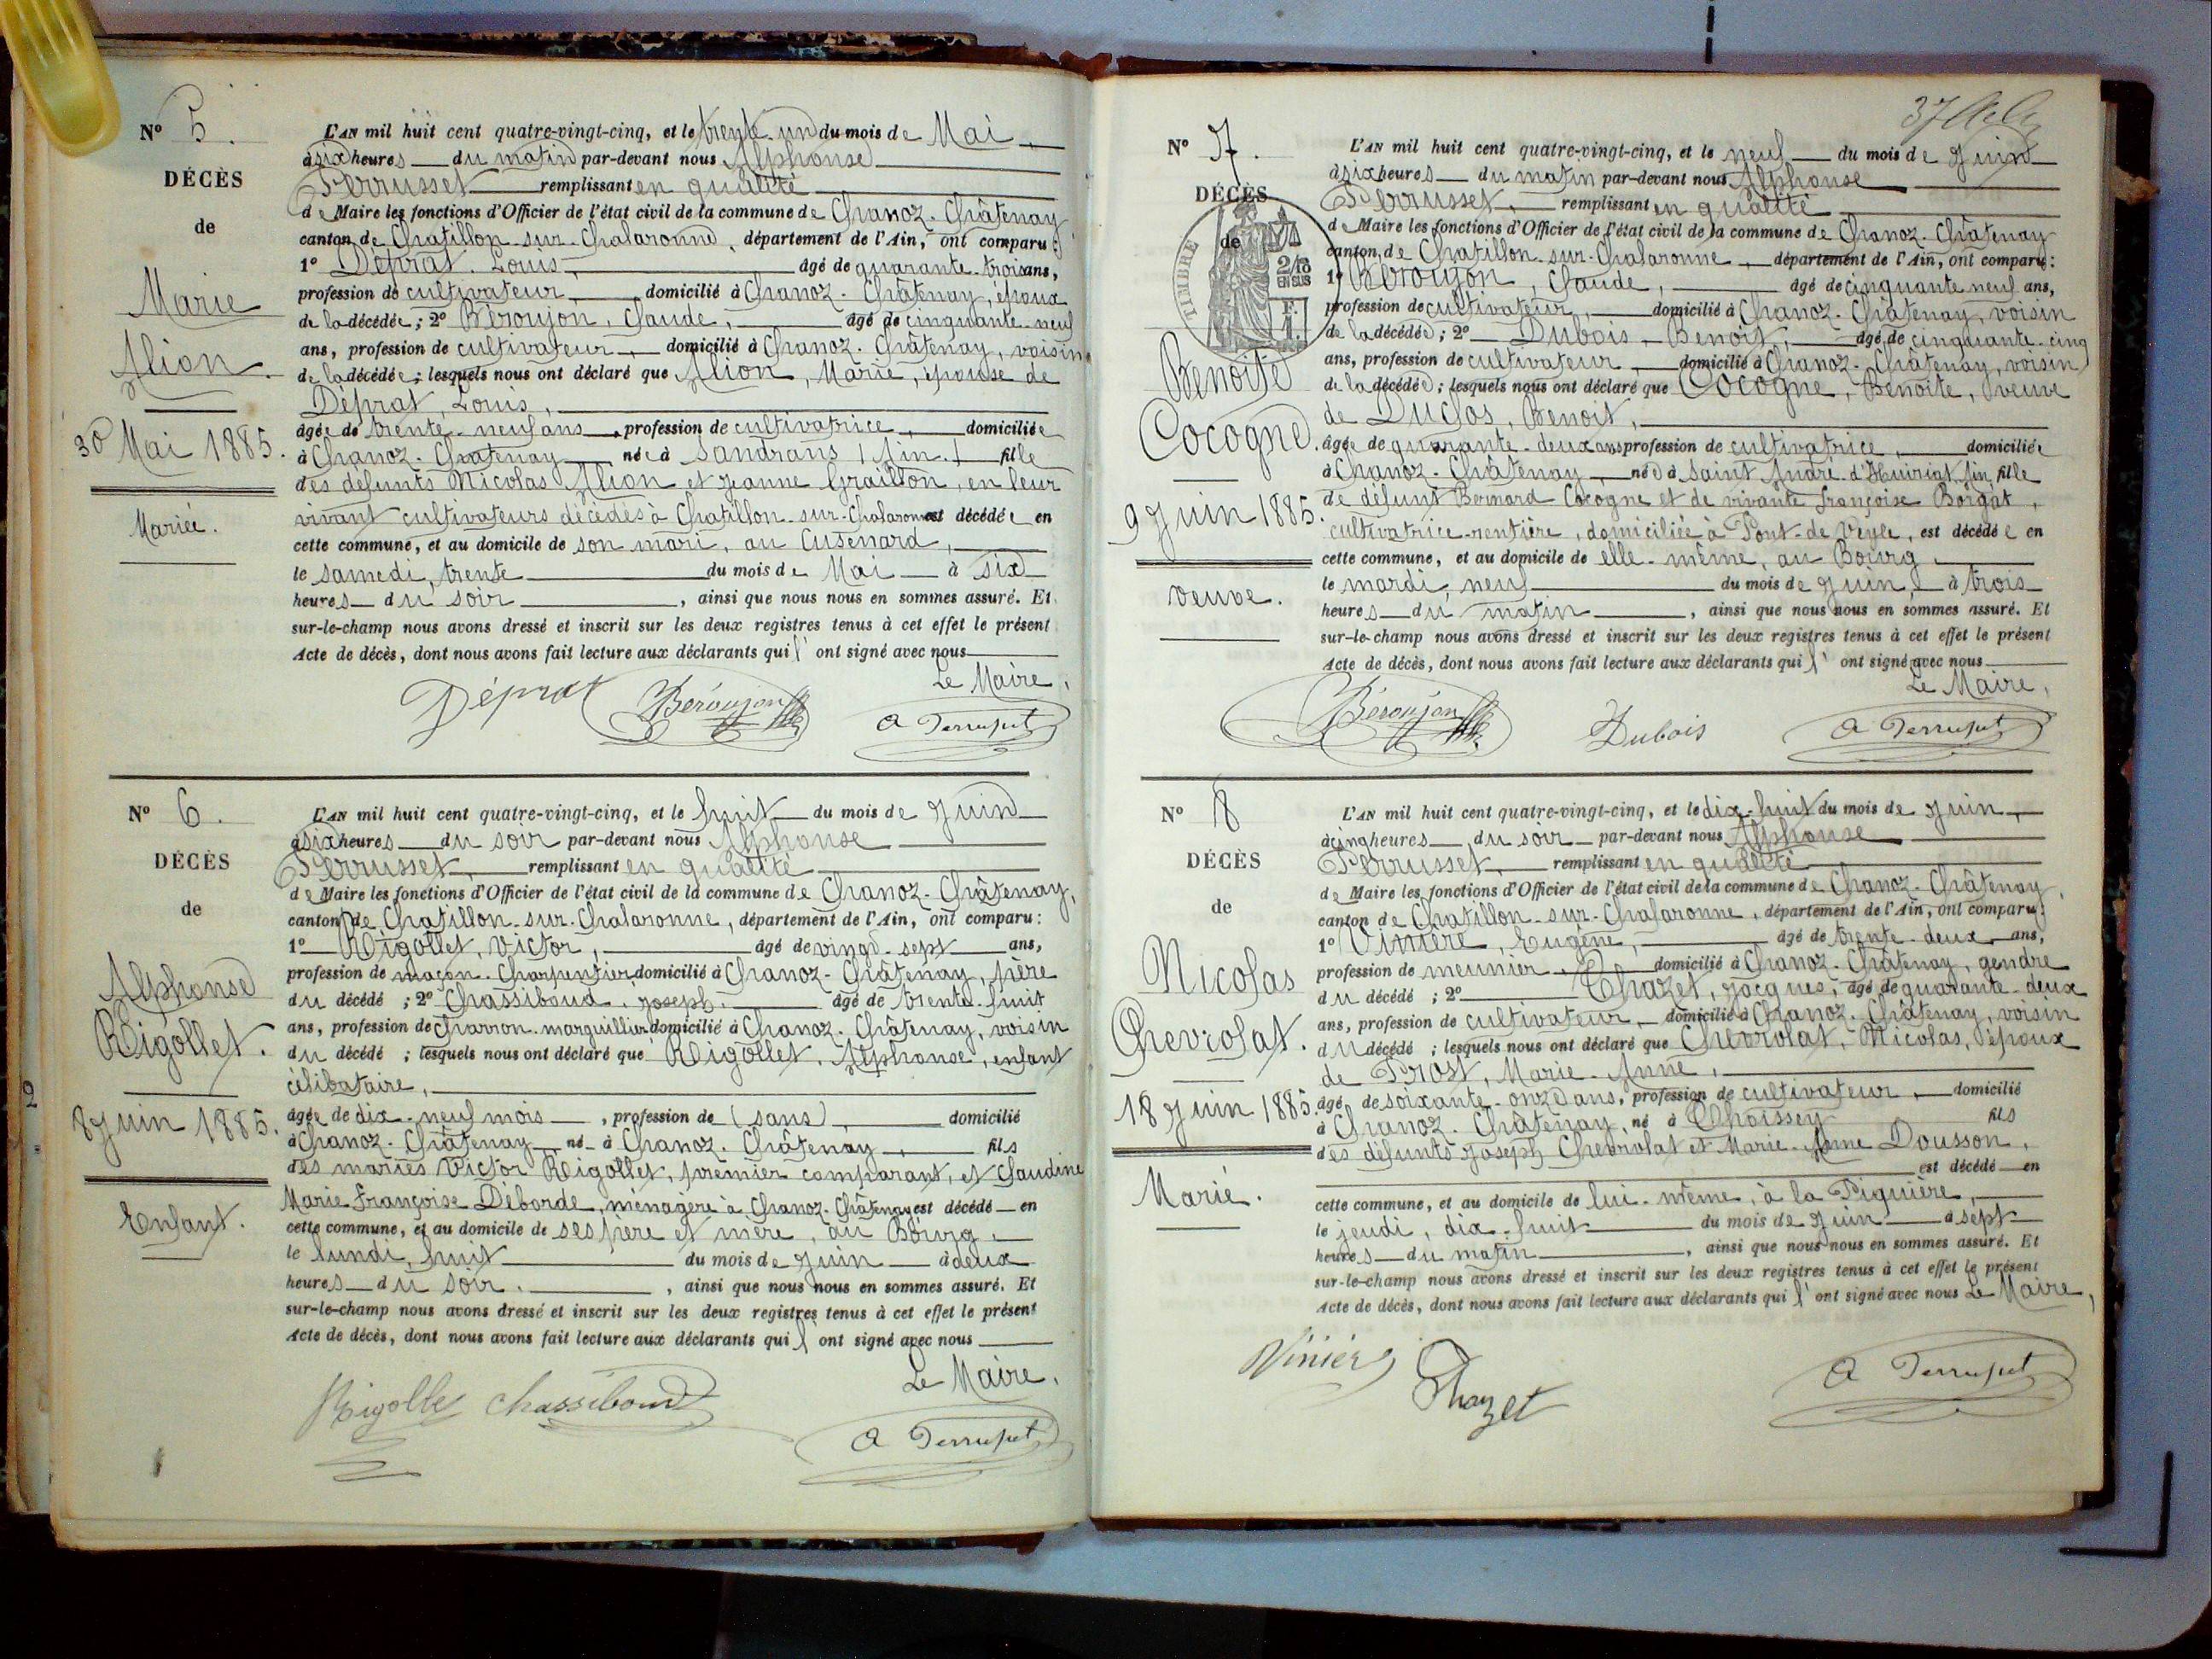 N° 5.
DÉCÈS
de
Marie
Alion.
30 Mai 1885.
Mariée.
L'AN mil huit cent quatre-vingt-cinq, et le trente-un du mois de Mai
à six heures du matin par-devant nous Alphonse
Perrusset remplissant en qualité
de Maire les fonctions d'Officier de l'état civil de la commune de Chanoz-Châtenay
canton de Chatillon-sur-Chalaronne, département de l'Ain, ont comparu:
1° Déprat, Louis, âgé de quarante-trois ans,
profession de cultivateur, domicilié à Chanoz-Châtenay, époux
de la décédée; 2° Béroujon, Claude, âgé de cinquante-neuf
ans, profession de cultivateur, domicilié à Chanoz-Châtenay, voisin
de la décédée; lesquels nous ont déclaré que Alion, Marie, épouse de
Déprat, Louis,
âgée de trente-neuf ans, profession de cultivatrice, domiciliée
à Chanoz-Chatenay née à Sandrans (Ain.) fille
des défunts Nicolas Alion et Jeanne Graillon, en leur
vivant cultivateurs décédés à Chatillon-sur-Chalaronne est décédée en
cette commune, et au domicile de son mari, au Cusenard,
le samedi, trente du mois de Mai à six
heures du soir, ainsi que nous nous en sommes assuré. Et
sur-le-champ nous avons dressé et inscrit sur les deux registres tenus à cet effet le présent
Acte de décès, dont nous avons fait lecture aux déclarants qui l' ont signé avec nous
Le Maire,
Déprat Béroujon A Perrusset
N° 6.
DÉCÈS
de
Alphonse
Rigollet.
8 Juin 1885.
Enfant.
L'AN mil huit cent quatre-vingt-cinq, et le huit du mois de Juin
à six heures du soir par-devant nous Alphonse
Perrusset, remplissant en qualité
de Maire les fonctions d'Officier de l'état civil de la commune de Chanoz-Châtenay,
canton de Chatillon-sur-Chalaronne, département de l'Ain, ont comparu:
1° Rigollet, Victor, âgé de vingt-sept ans,
profession de maçon-Charpentier domicilié à Chanoz-Châtenay, père
du décédé; 2° Chassiboud, Joseph. âgé de trente-huit
ans, profession de Charron-marguillier domicilié à Chanoz-Châtenay, voisin
du décédé; lesquels nous ont déclaré que Rigollet, Alphonse, enfant
célibataire,
âgée de dix-neuf mois, profession de (sans), domicilié
à Chanoz-Châtenay né à Chanoz-Châtenay, fils
des mariés Victor Rigollet, premier comparant, et Claudine
Marie Françoise Déborde, ménagère à Chanoz-Châtenay est décédé en
cette commune, et au domicile de ses père et mère, au Bourg,
le lundi, huit du mois de Juin à deux
heures du soir, ainsi que nous nous en sommes assuré. Et
sur-le-champ nous avons dressé et inscrit sur les deux registres tenus à cet effet le présent
Acte de décès, dont nous avons fait lecture aux déclarants qui l' ont signé avec nous
Le Maire,
Rigollet Chassiboud
A Perrusset
N° 7.
DÉCÈS
de
TIMBRE
2/10
EN SUS
1 F.
Benoîte
Cocogne.
9 Juin 1885.
Veuve.
L'AN mil huit cent quatre-vingt-cinq, et le neuf du mois de Juin
à six heures du matin par-devant nous Alphonse
Perrusset, remplissant en qualité
de Maire les fonctions d'Officier de l'état civil de la commune de Chanoz-Châtenay
canton de Chatillon-sur-Chalaronne, département de l'Ain, ont comparu:
1° Béroujon, Claude, âgé de cinquante neuf ans,
profession de cultivateur, domicilié à Chanoz-Châtenay, voisin
de la décédée; 2° Dubois, Benoit, âgé de cinquante-cinq
ans, profession de cultivateur, domicilié à Chanoz-Châtenay, voisin
de la décédée; lesquels nous ont déclaré que Cocogne, Benoite, veuve
de Duclos, Benoit,
âgée de quarante-deux ans profession de cultivatrice, domiciliée
à Chanoz-Châtenay, née à Saint André d'Huiriat, Ain, fille
de défunt Bernard Cocogne et de vivante Françoise Borgat,
cultivatrice-rentière, domiciliée à Pont-de-Veyle, est décédée en
cette commune, et au domicile de elle-même, au Bourg,
le mardi, neuf du mois de Juin, à trois
heures du matin, ainsi que nous nous en sommes assuré. Et
sur-le-champ nous avons dressé et inscrit sur les deux registres tenus à cet effet le présent
Acte de décès, dont nous avons fait lecture aux déclarants qui l' ont signé avec nous
Le Maire,
Béroujon Dubois A Perrusset
N° 8
DÉCÈS
de
Nicolas
Chevrolat.
18 Juin 1885.
Marié.
L'AN mil huit cent quatre-vingt-cinq, et le dix-huit du mois de Juin,
à cinq heures du soir par-devant nous Alphonse
Perrusset, remplissant en qualité
de Maire les fonctions d'Officier de l'état civil de la commune de Chanoz-Châtenay,
canton de Chatillon-sur-Chalaronne, département de l'Ain, ont comparu:
1° Vinière, Eugène, âgé de trente-deux ans,
profession de meunier, domicilié à Chanoz-Châtenay, gendre
du décédé; 2° Chazet, Jacques, âgé de quarante-deux
ans, profession de cultivateur, domicilié à Chanoz-Châtenay, voisin
du décédé; lesquels nous ont déclaré que Chevrolat, Nicolas, époux
de Prost, Marie-Anne,
âgé de soixante-onze ans, profession de cultivateur, domicilié
à Chanoz-Châtenay, né à Thoissey fils
des défunts Joseph Chevrolat et Marie-Anne Dousson,
est décédé en
cette commune, et au domicile de lui-même, à la Piquière,
le jeudi, dix-huit du mois de Juin à sept
heures du matin, ainsi que nous nous en sommes assuré. Et
sur-le-champ nous avons dressé et inscrit sur les deux registres tenus à cet effet le présent
Acte de décès, dont nous avons fait lecture aux déclarants qui l' ont signé avec nous Le Maire,
Vinière Chazet A Perrusset